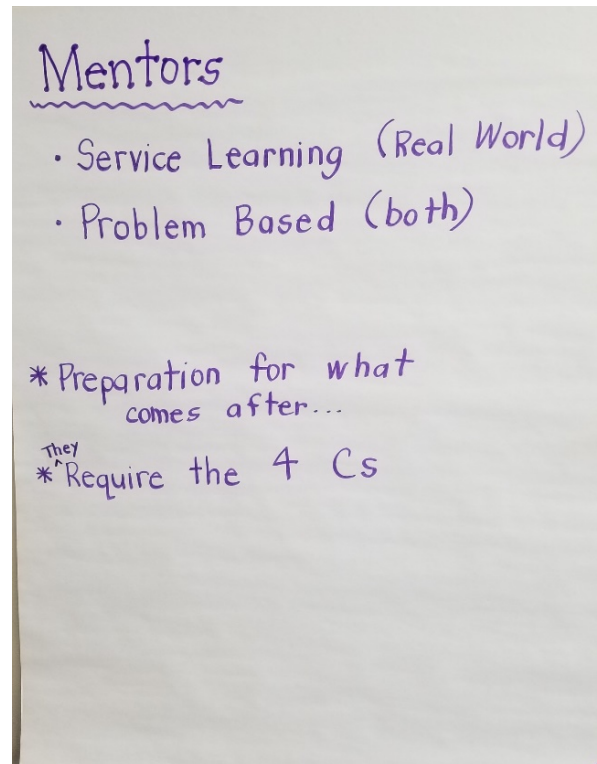 Mentors
• Service Learning (Real World)
• Problem Based (both)
* Preparation for what
comes after...
They
*^Require the 4 Cs